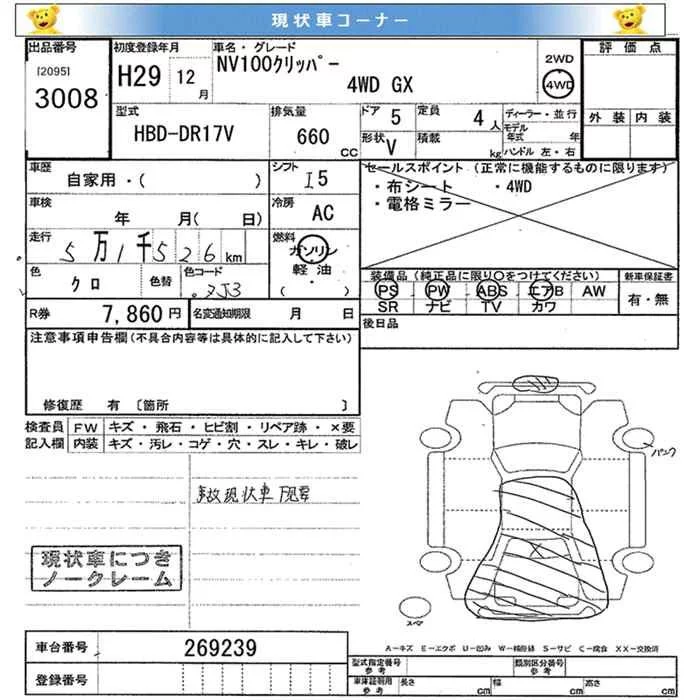 現状車コーナー
出品番号 初度登録年月 車名・グレード 評価点
[2095] H29 12月 NV100クリッパー 2WD
3008 4WD GX 4WD
型式 排気量 ドア 5 定員 4人 ディーラー・並行 外装 内装
HBD-DR17V 660cc 形状 V 積載 kg モデル年式 年
ハンドル 左・右
車歴 自家用・( ) シフト I5 セールスポイント (正常に機能するものに限ります)
・布シート ・4WD
・電格ミラー
車検 年 月( 日) 冷房 AC
走行 5万1千526km 燃料 ガソリン
軽油
( )
色 クロ 色替 色コード ZJ3
装備品 (純正品に限り○をつけてください) 新車保証書
PS PW ABS エアB AW 有・無
SR ナビ TV カワ
R券 7,860円 名変通知期限 月 日 後日品
注意事項申告欄(不具合内容等は具体的に記入して下さい)
修復歴 有 〔箇所 〕
検査員 FW キズ・飛石・ヒビ割・リペア跡・×要
記入欄 内装 キズ・汚レ・コゲ・穴・スレ・キレ・破レ
パンク
事故現状車
現状車につき
ノークレーム
X
スペア
A-キズ E-エクボ U-凹み W-補修跡 S-サビ C-腐食 XX-交換済
車台番号 269239
登録番号
型式指定番号 参考 類別区分番号 参考
車庫証明用 参考 長さ cm 幅 cm 高さ cm